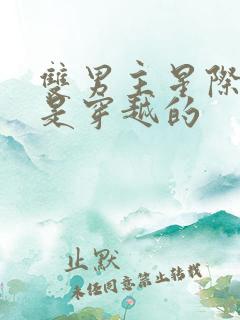 雙男主星際
是穿越的
止默
未经同意禁止转载